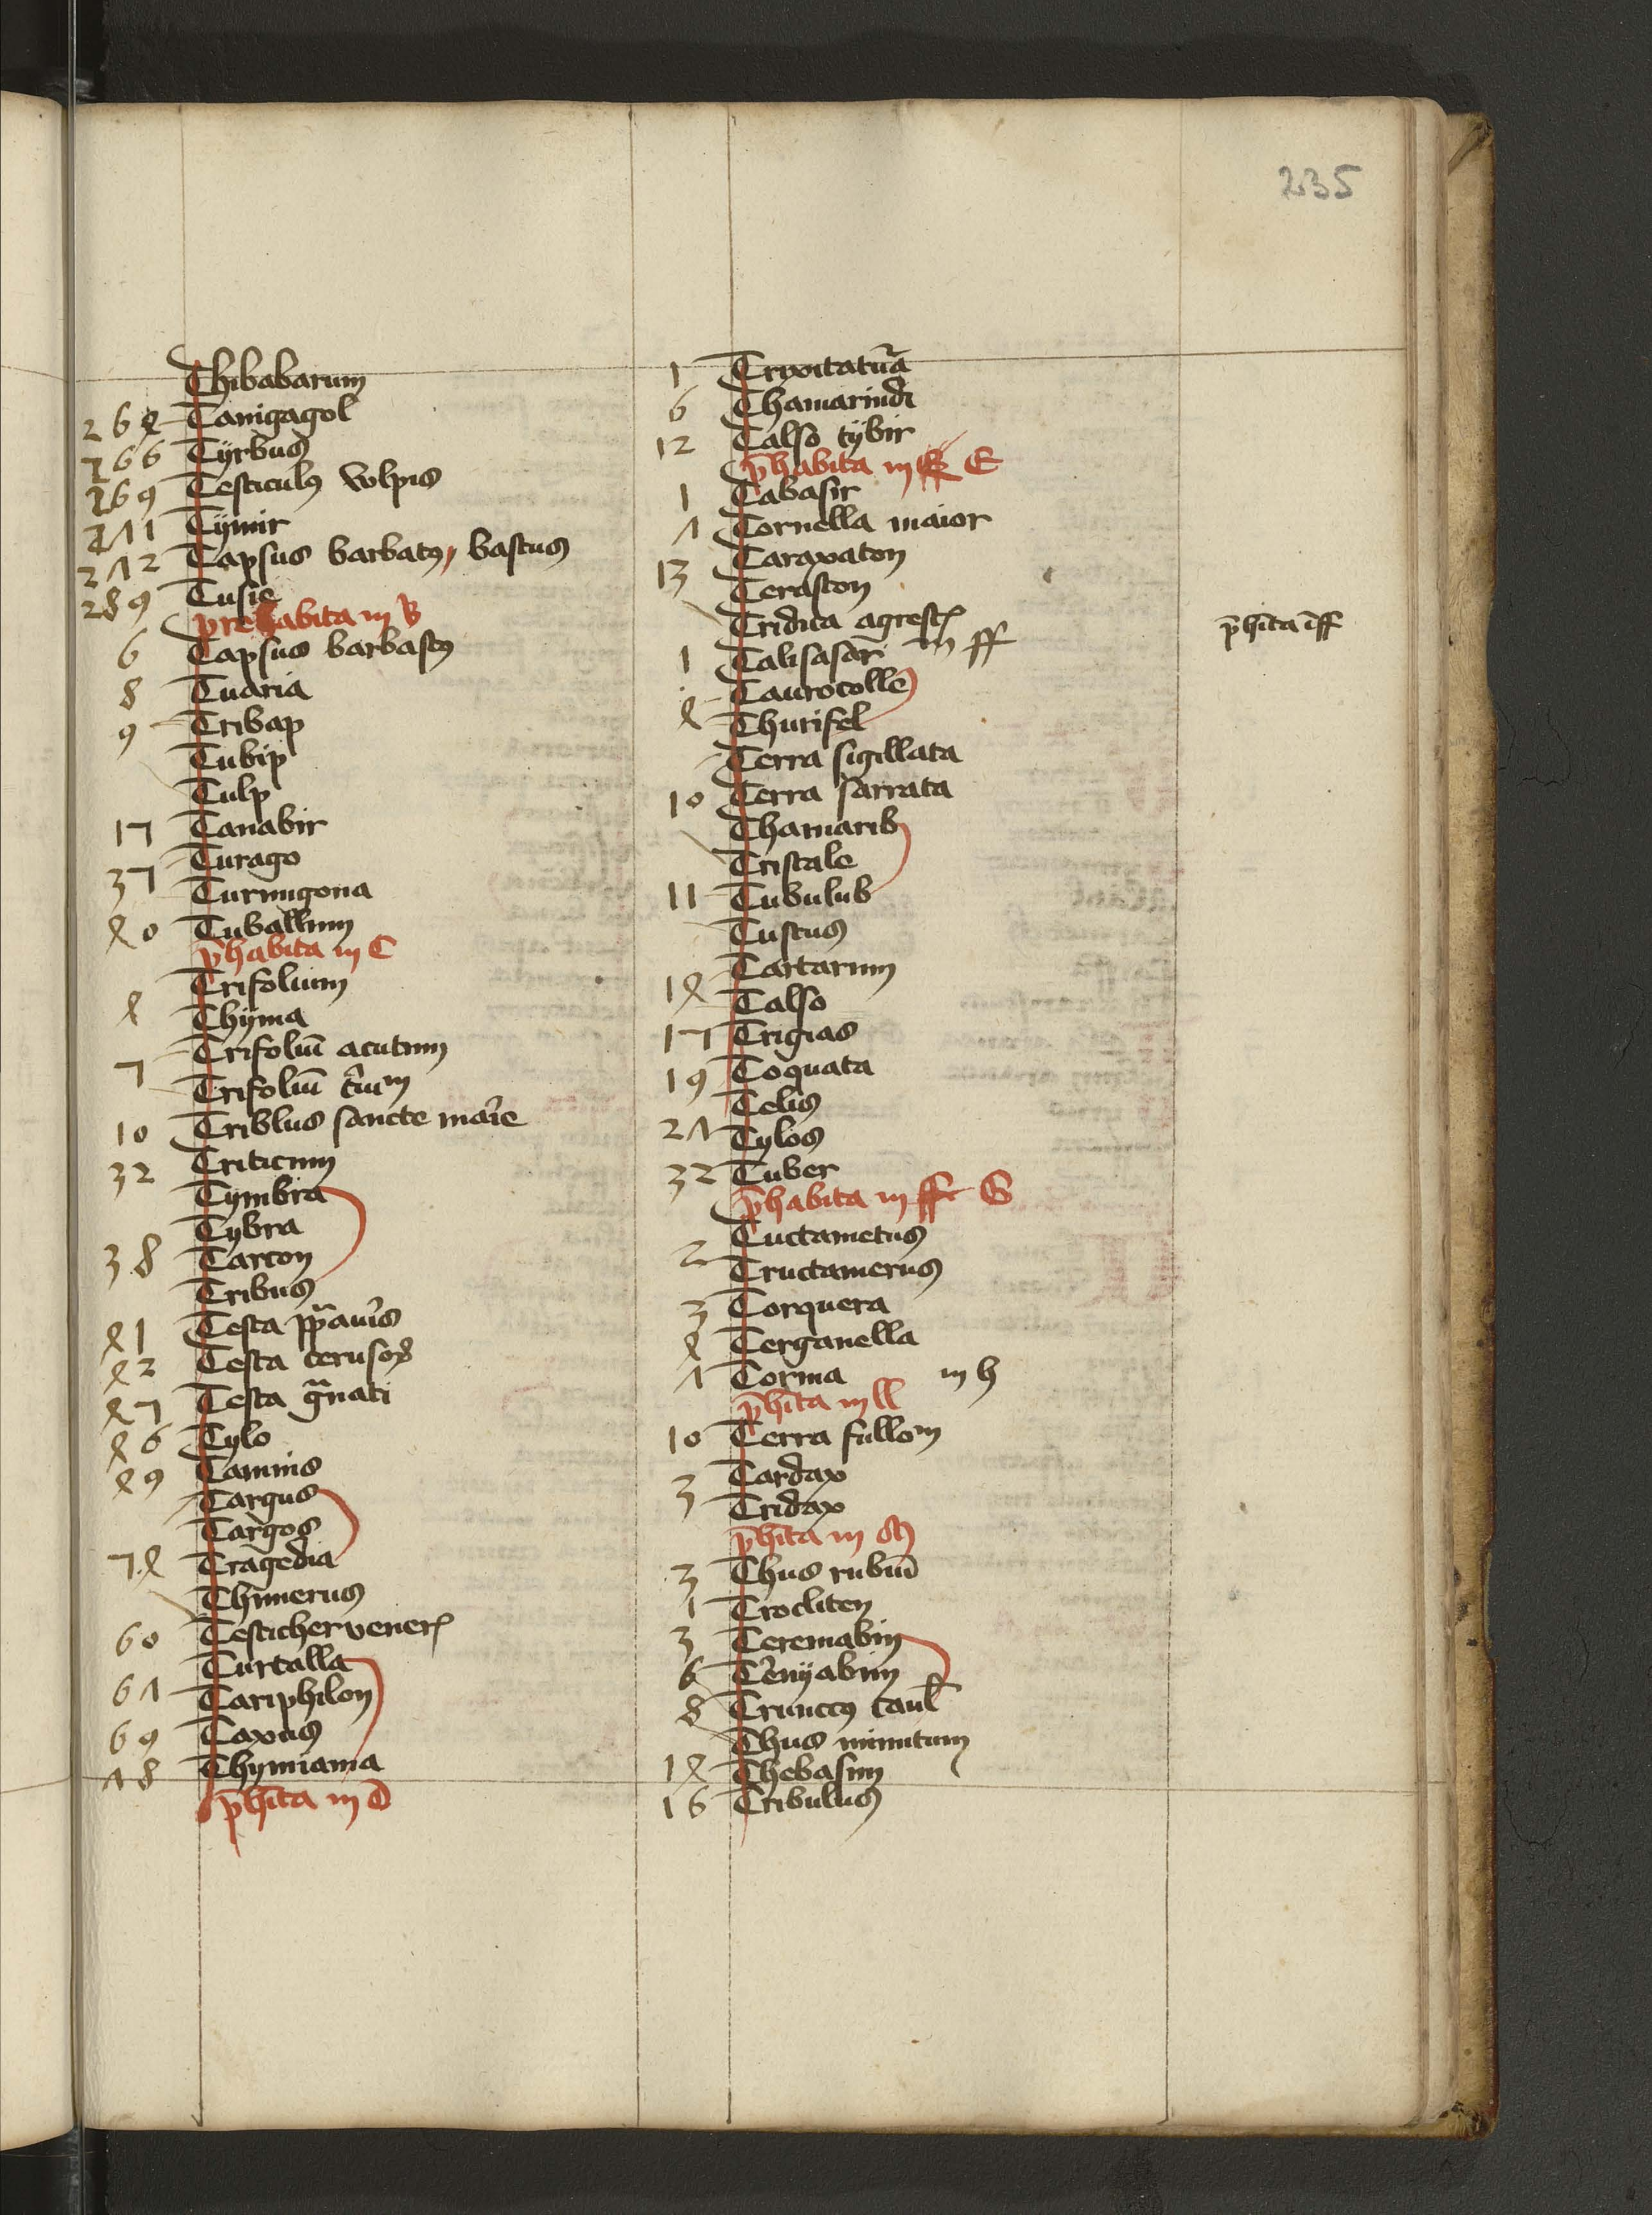 235
Thibabarum
264 Tanigagol
266 Tyrbus
269 Testiculꝰ volpis
211 Tymir
212 Tapsus barbatꝰ, bastus
289 Tusie
prehabita in B
6 Tapsus barbastꝰ
8 Tuaria
9 Tribap
Tubip
Tulp
17 Tanabir
37 Turago
Turnugona
40 Tuballum
p̄habita in C
Trifolium
4 Thyma
7 Trifoliū acutum
Trifoliū
10 Triblus sancte marie
32 Triticum
Tymbra
Tybra
38 Tarcon
Tribus
41 Testa
42 Testa
47 Testa gͣnati
46 Tylo
49 Tamnis
Targus
Targos
74 Tragedia
Thimerus
60 Testicherveneris
Turtalla
61 Tariphilon
69 Taxus
18 Thymiama
p̄hīta in D
1
6 Thamarindi
12 Talso tybir
p̄habita in E
1 Tabasir
1 Tornella maior
Taraxaton
13 Terascon
Tridua agrestꝭ
1 Talisafar in ff
Taurocolle
4 Thurifel
Terra sigillata
10 Terra sarrata
Thamarib
Tristale
11 Tubulub
Tustus
Tartarum
14 Talso
17 Trigias
19 Toquata
Telis
21 Tylos
32 Tuber
p̄habita in ff G
2 Tuctametus
Tructamerus
3 Torquera
4 Terganella
1 Torma in h
p̄hīta in ll
10 Terra fullom
3 Tardax
Tridax
p̄hīta in M
3 Thus rubeū
1 Trocliten
3 Teremabin
6 Tērenyabim
8 Trunctꝰ caul
Thus minutum
14 Thebasim
16 Tribulus
p̄hīta ī ff